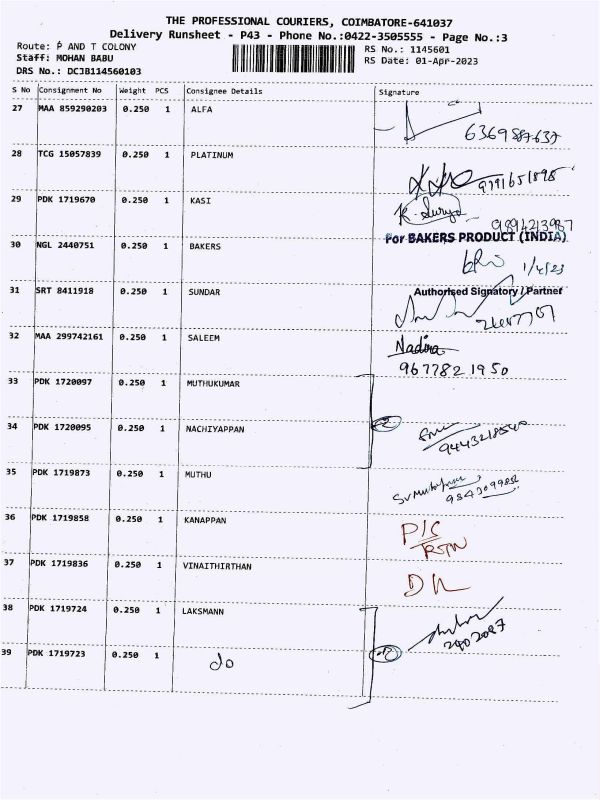 THE PROFESSIONAL COURIERS, COIMBATORE-641037
Delivery Runsheet - P43 - Phone No.:0422-3505555 - Page No.:3
Route: P AND T COLONY
RS No.: 1145601
Staff: MOHAN BABU
RS Date: 01-Apr-2023
DRS No.: DCJB114560103
S No Consignment No Weight PCS Consignee Details Signature
27 MAA 859290203 0.250 1 ALFA
28 TCG 15057839 0.250 1 PLATINUM
9791651898
29 PDK 1719670 0.250 1 KASI
K. Surya
9894213987
For BAKERS PRODUCT (INDIA)
30 NGL 2440751 0.250 1 BAKERS
1/4/23
31 SRT 8411918 0.250 1 SUNDAR
Authorised Signatory / Partner
32 MAA 299742161 0.250 1 SALEEM
Nadira
9677821950
33 PDK 1720097 0.250 1 MUTHUKUMAR
34 PDK 1720095 0.250 1 NACHIYAPPAN
35 PDK 1719873 0.250 1 MUTHU
36 PDK 1719858 0.250 1 KANAPPAN
P/C
RTN
37 PDK 1719836 0.250 1 VINAITHIRTHAN
DL
38 PDK 1719724 0.250 1 LAKSMANN
39 PDK 1719723 0.250 1 do